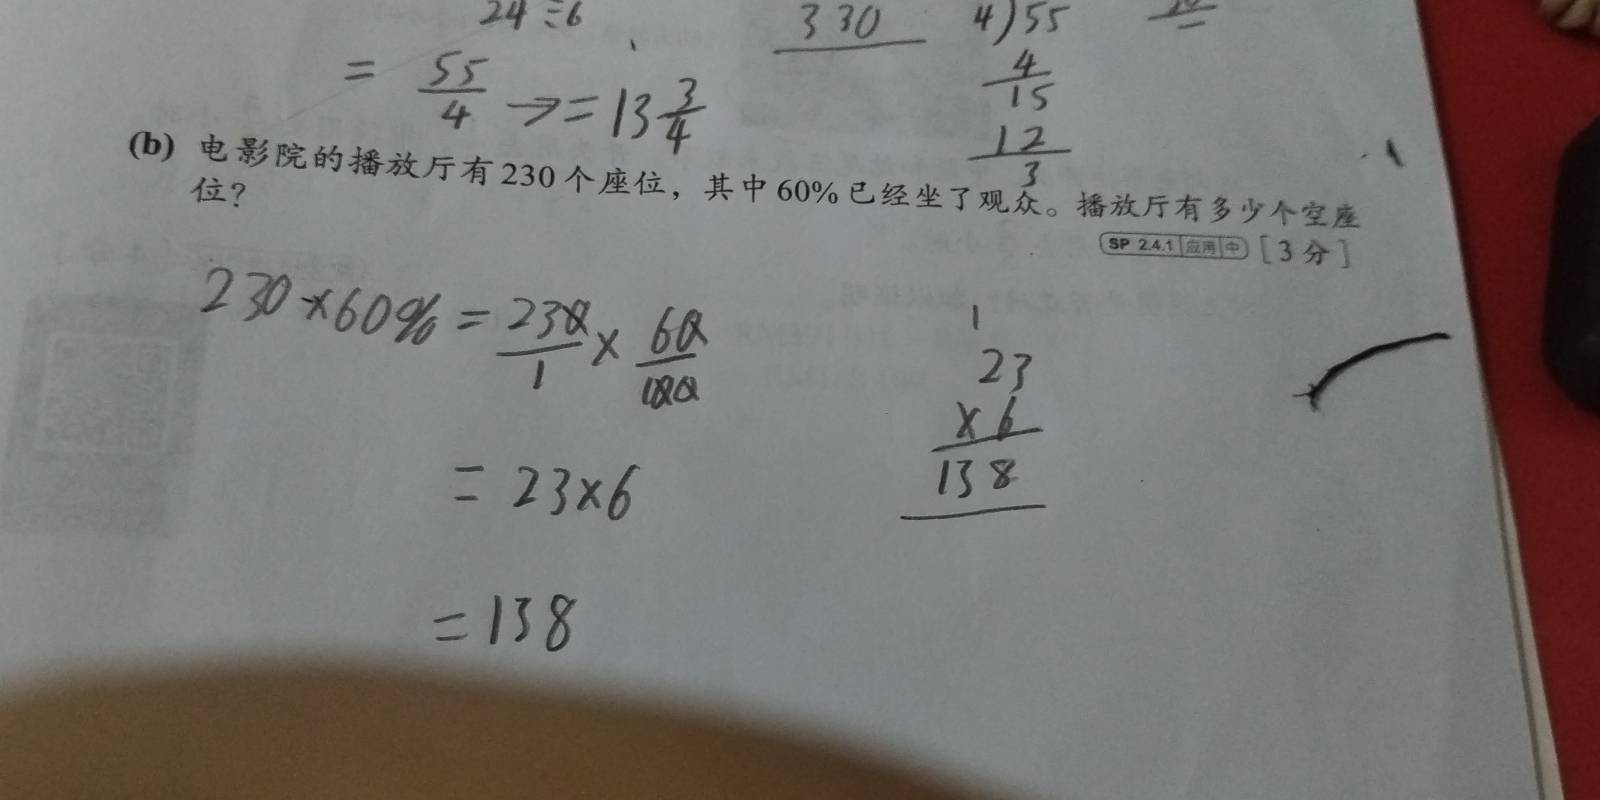 24 ÷ 6
330
4)55
= 55/4 → = 13 3/4
4
15
12
3
(b) 电影院的播放厅有 230 个座位，其中 60% 已经坐了观众。播放厅有多少个空座
位？
SP 2.4.1 应用 中 [3 分]
230 × 60% = 230/1 × 60/100
= 23×6
= 138
1
23
× 6
138